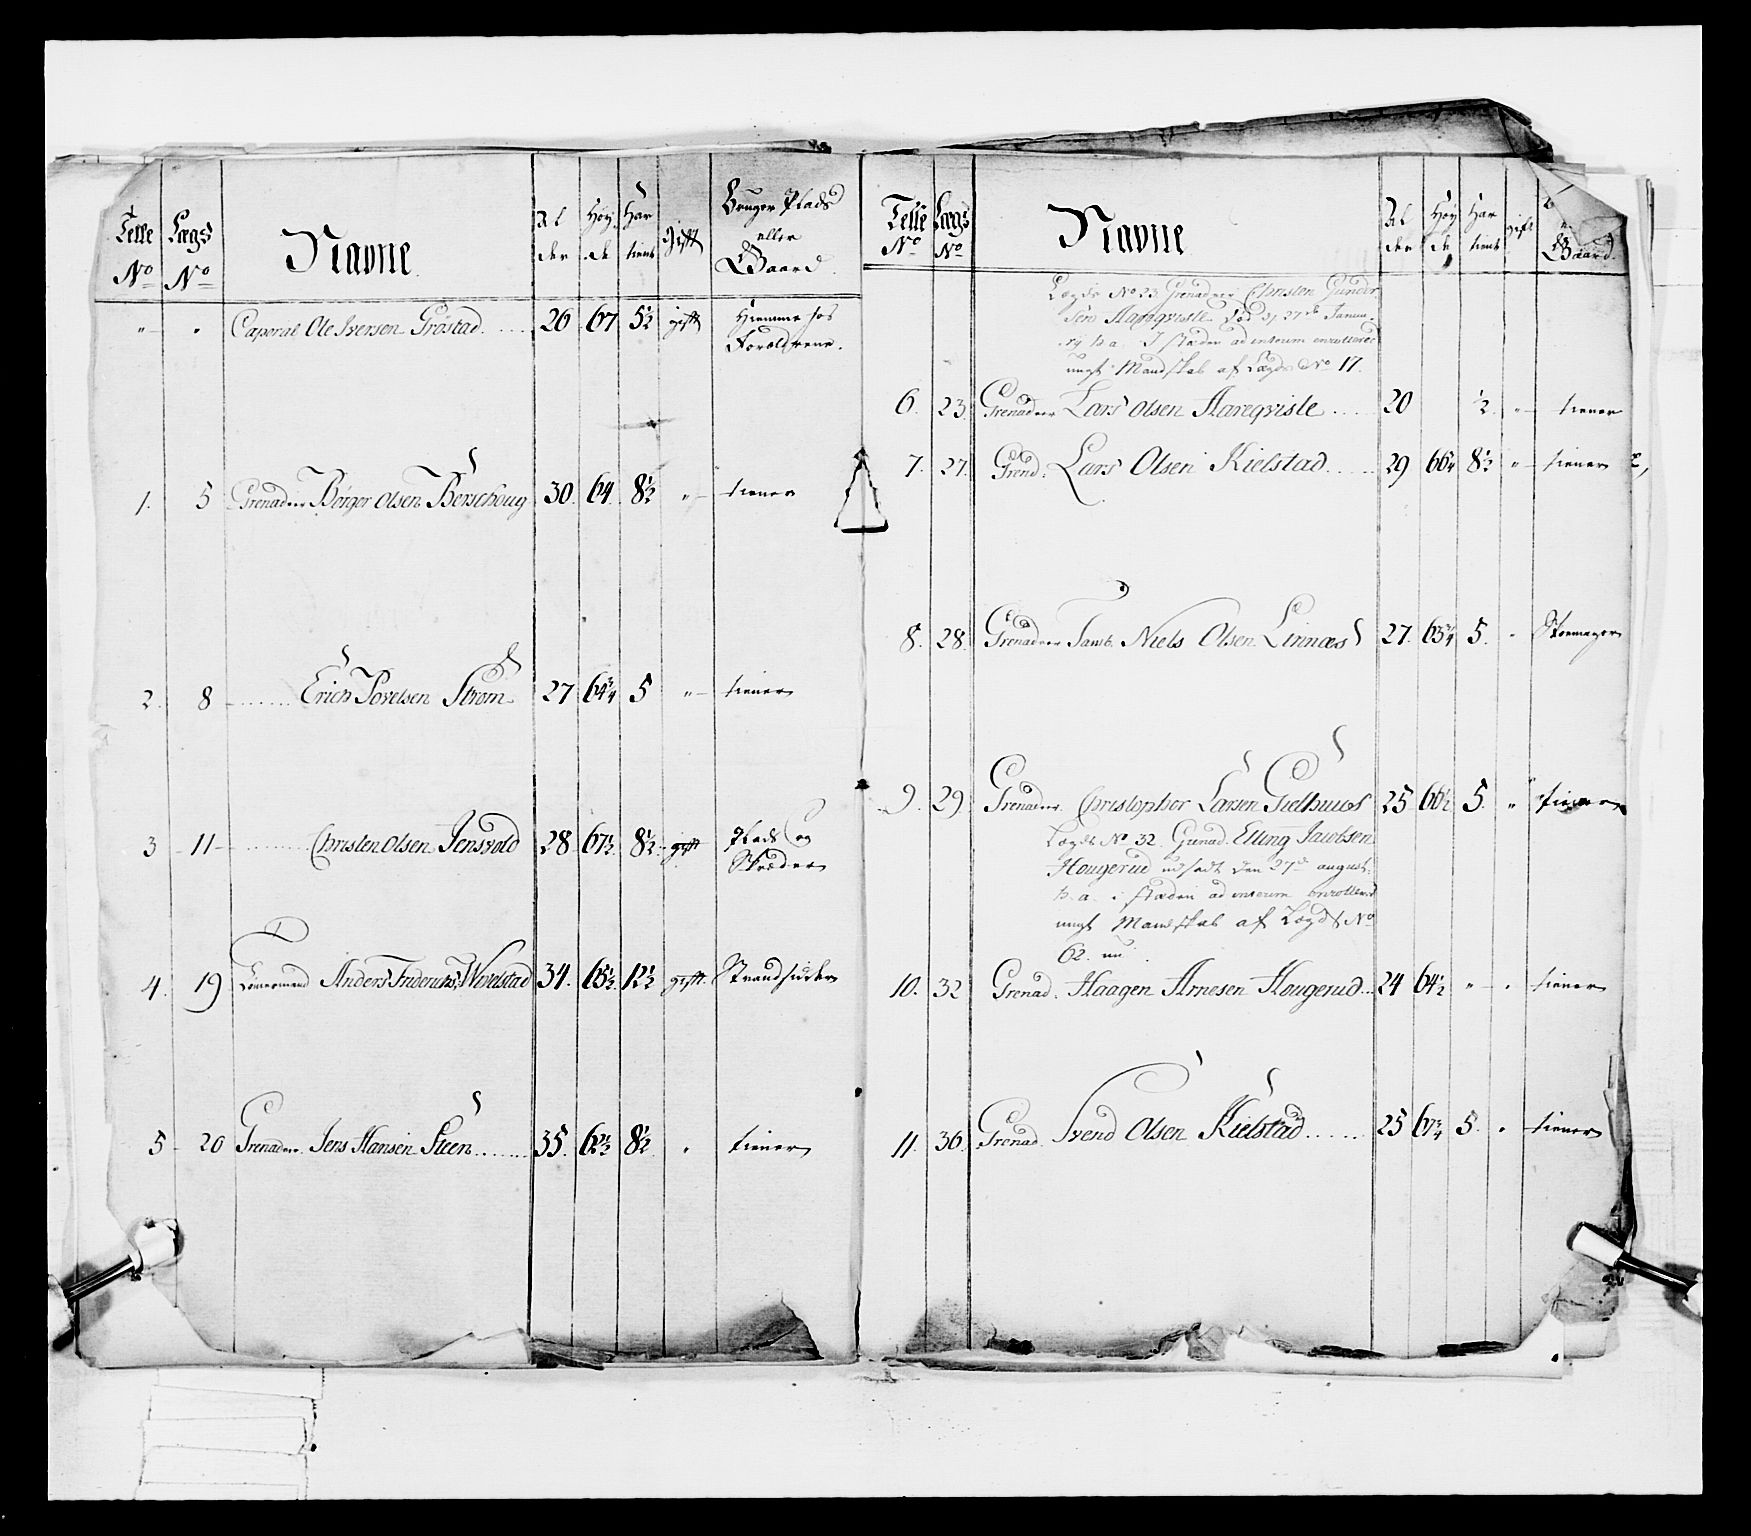 Telle Lægs Navne Al Høy Har gift Bruger Plads
No No der de tient eller
Gaard
" " Caporal Ole Iversen Gröstad 26 67 5½ gift Hiemme hos
Forældrene.
1. 5 Grenadeer Börger Olsen Berschoug 30. 64. 8½ " tiener
2. 8 Erich Povelsen Ström 27 64¾ 5 " tiener
3 11 Christen Olsen Jensvold 28 67½ 8½ gift Plads og
Skræder
4. 19 Tömermand Anders Friderichs. Wovelstad 34. 65½ 12½ gift. Strandsider
5 20 Grenadeer Jens Hansen Steen 35. 62½ 8½ " tiener
Telle Lægs Navne Al Høy Har gift
No No der de tient Gaard.
Lægds No 23 Grenadeer Christen Gunder
sen Hareqviste död d. 27de Janua-
rij h. a. I stæden ad interim enrolleret
ungt Mandskab af Lægds No 17.
6. 23. Grenadeer Lars Olsen Hareqviste 20 ½ " tiener
7. 27. Grend. Lars Olsen Kielstad 29 66¼ 8½ " tiener
8. 28. Grenadeer Tamb. Niels Olsen Linnæs 27. 63¾ 5. " Skoemager
9. 29. Grenadeer Christopher Larsen Gielhuus 25 66½ 5. " tiener
Lægds No 32 Grenad. Elling Jacobsen
Hougerud udsadt den 27de august.
h. a. i stæden ad interim enrolleret
ungt Mandskab af Lægds No
62. nu
10. 32 Grenad. Haagen Arnesen Hougerud 24 64½ " " tiener
11. 36. Grenad. Svend Olsen Kielstad 25 67¾ 5. " tiener